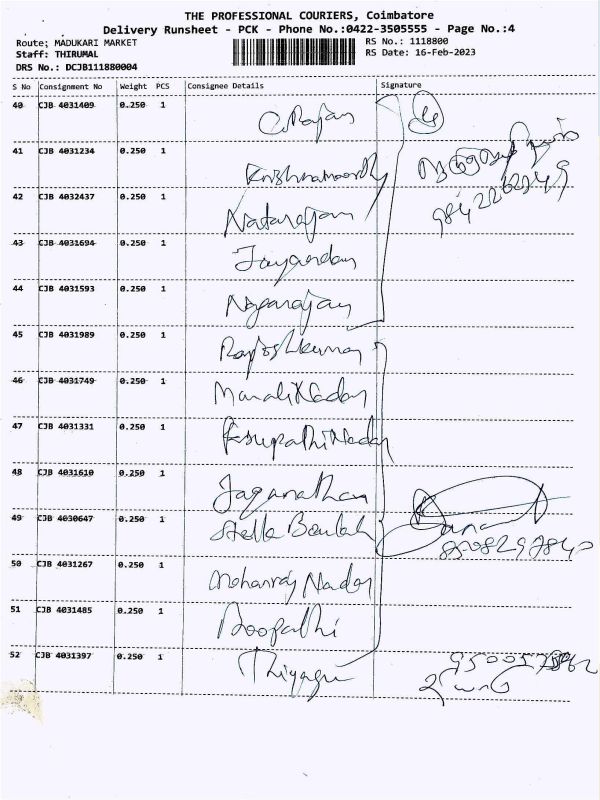 THE PROFESSIONAL COURIERS, Coimbatore
Delivery Runsheet - PCK - Phone No.:0422-3505555 - Page No.:4
Route: MADUKARI MARKET
RS No.: 1118800
Staff: THIRUMAL
RS Date: 16-Feb-2023
DRS No.: DCJB111880004
S No Consignment No Weight PCS Consignee Details Signature
40 CJB 4031409 0.250 1 C. Rajan
41 CJB 4031234 0.250 1 Krishnamoorthy
9842262949
42 CJB 4032437 0.250 1 Natarajan
43 CJB 4031694 0.250 1
44 CJB 4031593 0.250 1 Nagarajan
45 CJB 4031989 0.250 1 Rajeshkumar
46 CJB 4031749 0.250 1 Murali Nadar
47 CJB 4031331 0.250 1 Pasupathi Nadar
48 CJB 4031610 0.250 1 Jaganathan
49 CJB 4030647 0.250 1 Stella Beulah
50 CJB 4031267 0.250 1 Mohanraj Nadar
51 CJB 4031485 0.250 1 Boopathi
52 CJB 4031397 0.250 1 Thiyagu